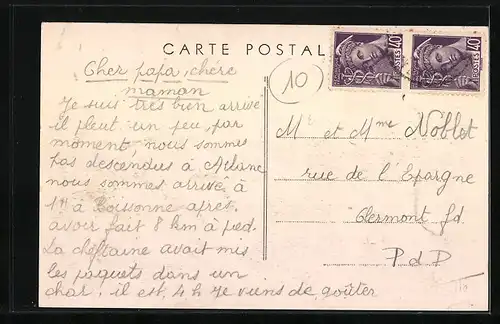 CARTE POSTAL
40 POSTES 40
Cher papa, chère
maman
(10)
Je suis très bien arrivé
il pleut un peu, par
moment, nous sommes
pas descendus à
nous sommes arrivé à
11h à après
avoir fait 8 km à pied.
La cheftaine avait mis
les paquets dans un
char. il est 4 h je viens de goûter
M et Mme Noblet
rue de l'Epargne
Clermont fd
P d D